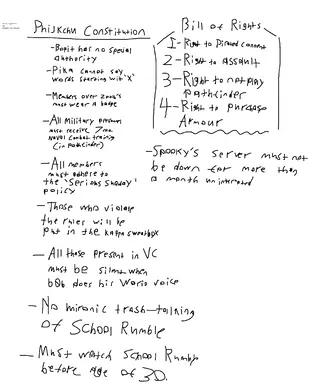 PhiJKchu Constitution
- Bopit has no special
authority
- Pika cannot say
words starting with "X"
- Members over 200lbs
must wear a badge
- All Military present
must receive 7 mo.
Naval Combat training
(in pathfinder)
- All members
must adhere to
the "Serious Sunday"
policy
- Those who violate
the rules will be
put in the kappa sweatbox
- All those present in VC
must be silent when
bob does his Word voice
- No mironic trash-talking
of School Rumble
- Must watch School Rumble
before age of 30.
Bill of Rights
1- Right to
2- Right to Assault
3- Right to not play
pathfinder
4- Right to purchase
Armour
- Spooky's server must not
be down for more than
a month uninterrupted